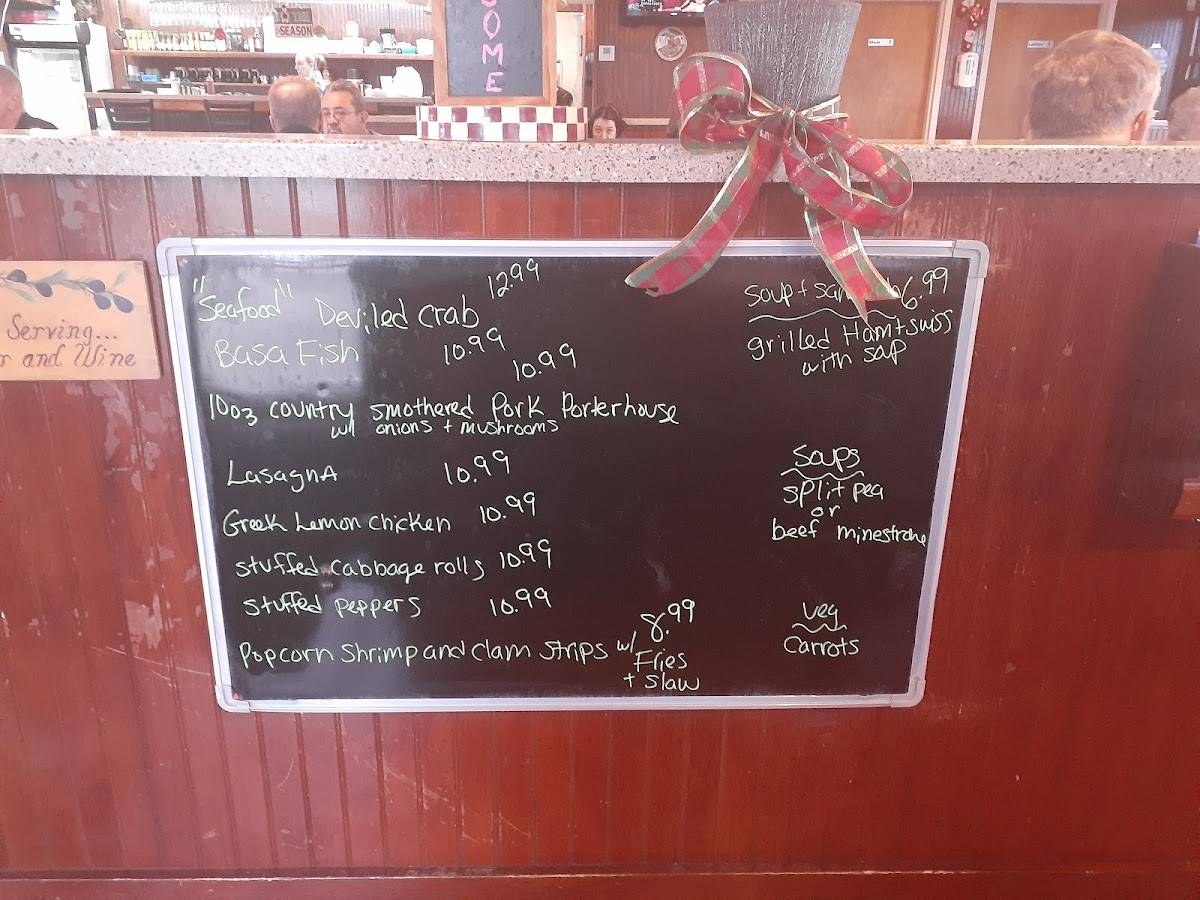 SEASON
OME
Serving...
r and Wine
"Seafood" Deviled crab 12.99
Basa Fish 10.99
10.99
10oz country smothered Pork Porterhouse
w/ onions + mushrooms
Lasagna 10.99
Greek Lemon chicken 10.99
stuffed cabbage rolls 10.99
stuffed peppers 10.99
Popcorn Shrimp and clam strips w/ 8.99
Fries
+ slaw
Soup + san 6.99
grilled Ham + swiss
with sap
Soups
split pea
or
beef minestrone
Veg
Carrots